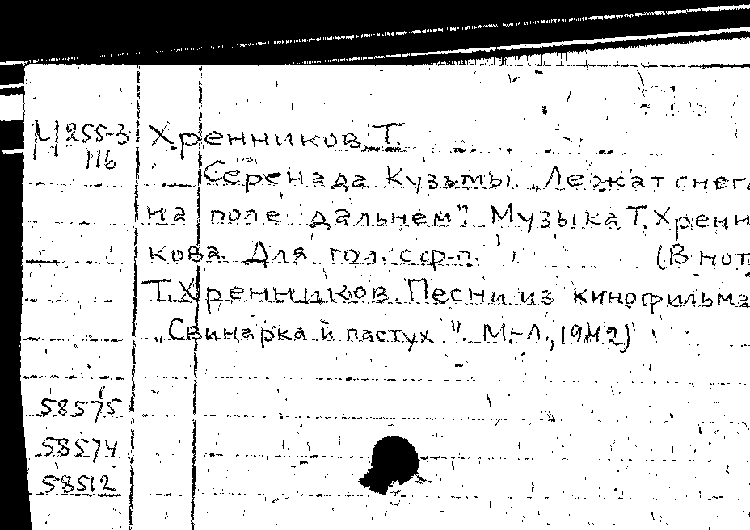 М 255-3 Хренников Т.
116
Серенада Кузьмы „Лежат снега
на поле дальнем". Музыка Т. Хренни
кова. Для гол. с ф-п. (В нот
Т. Хренников. Песни из кинофильма
„Свинарка и пастух". М-Л., 1942)
58575
58574
58512